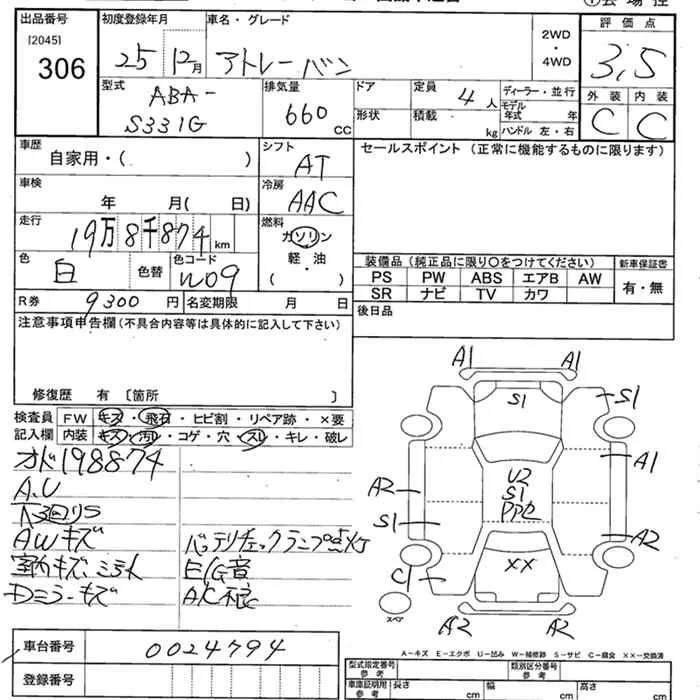 出品番号 初度登録年月 車名・グレード 評価点
[2045]
306
25 12月 アトレーバン
2WD
・
4WD
3,5
型式 排気量 ドア 定員 ディーラー・並行 外装 内装
ABA-
S331G
660 cc
形状 積載 kg
4人
モデル年式 年
ハンドル 左・右
C C
車歴 自家用・( )
シフト AT
セールスポイント(正常に機能するものに限ります)
車検 年 月( 日)
冷房 AAC
走行 19万8千874km
燃料 ガソリン
軽・油
( )
色 白 色替 色コード W09
装備品(純正品に限り○をつけてください) 新車保証書
PS PW ABS エアB AW 有・無
SR ナビ TV カワ
R券 9300円 名変期限 月 日
後日品
注意事項申告欄(不具合内容等は具体的に記入して下さい)
修復歴 有 〔箇所 〕
検査員 FW キズ・飛石・ヒビ割・リペア跡・×要
記入欄 内装 キズ・汚れ・コゲ・穴・スレ・キレ・破レ
オド198874
A.U
下回りS
AWキズ
バッテリチェックランプ点灯
E/G音
Dミラーキズ
A/C不良
A1 A1
S1 S1
A1
U2
S1
A2
S1
A2
XX
C1
スペア
A2 A2
車台番号 0024794
登録番号
A-キズ E-エクボ U-凹み W-補修跡 S-サビ C-腐食 XX-交換済
型式指定番号 参考 類別区分番号 参考
車庫証明用 参考 長さ cm 幅 cm 高さ cm